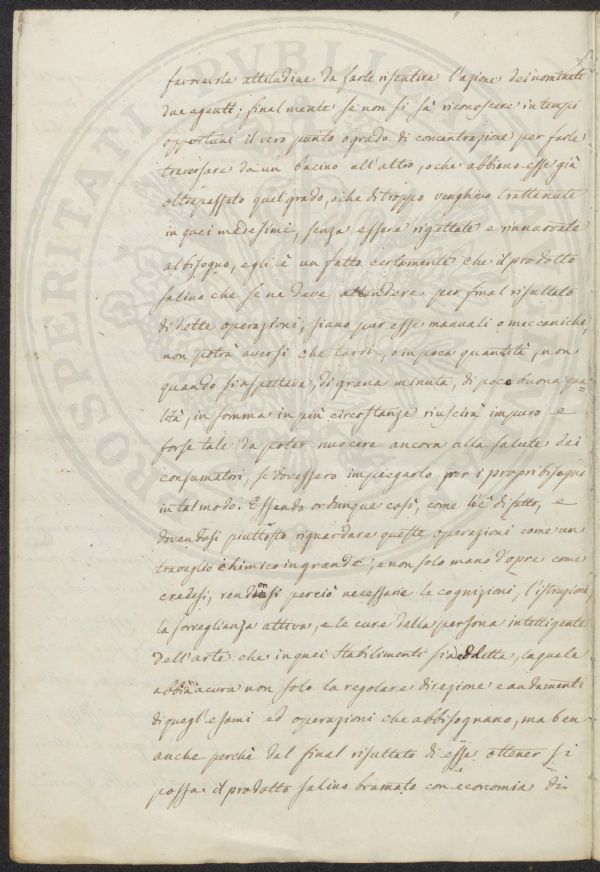 favorevole attitudine da farle risentire l'azione dei nominati
due agenti; finalmente se non si sà riconoscere in tempi
opportuni il vero punto o grado di concentrazione per farle
traversare da un bacino all'altro, o che abbiano esse già
oltrepassato quel grado, o che di troppo venghino trattenute
in quei medesimi, senza essere rigettate e rinnovate
al bisogno, egli è un fatto certamente che il prodotto
salino che se ne deve attendere per final risultato
di dette operazioni, siano pur esse manuali o meccaniche,
non potrà aversi che tardi, o in poca quantità, non
quando si aspettava, di grana minuta, di poco buona qua=
lità, in somma in più circostanze riuscirà impuro e
forse tale da poter nuocere ancora alla salute dei
consumatori, se dovessero impiegarlo per i propri bisogni
in tal modo. Essendo ordunque così, come lo è di fatto, e
dovendosi piuttosto riguardare queste operazioni come un
travaglio chimico in grande, e non solo mano d'opre come
credesi, rendonsi perciò necessarie le cognizioni, l'istruzione,
la sorveglianza attiva, e le cure della persona intelligente
dell'arte che in quei stabilimenti sia addetta, la quale
abbia a cura non solo la regolare direzione e andamenti
di quegl'esami ed operazioni che abbisognano, ma ben
anche perchè dal final risultato di esse ottener si
possa il prodotto salino bramato con economia di
PROSPERITATI PVBLICAE